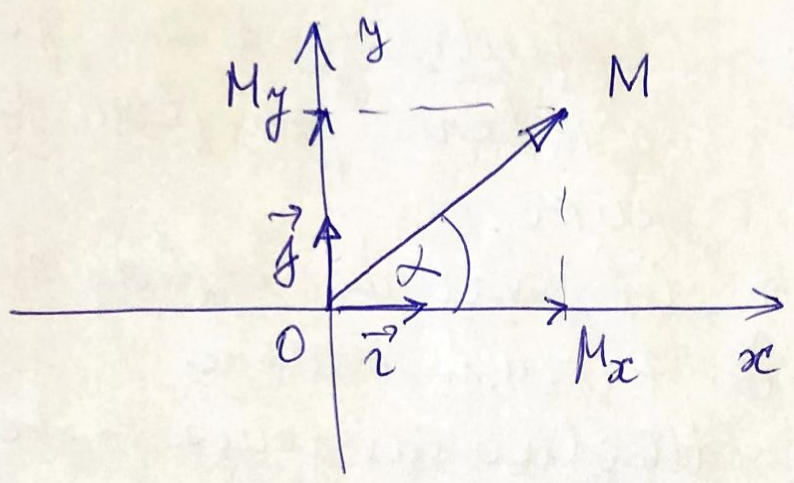 y
M_y
M
j⃗
α
O
i⃗
M_x
x